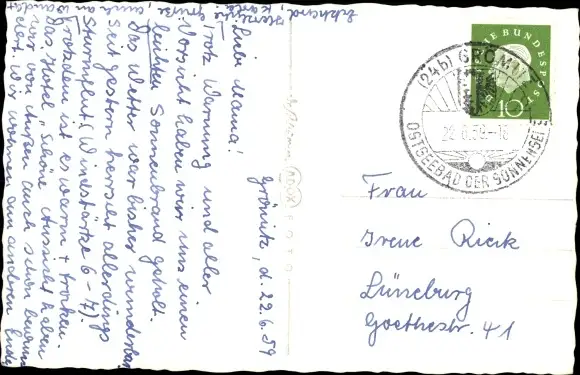 Grömitz, d. 22.6.59
Liebe Mama!
Trotz Warnung und aller
Vorsicht haben wir uns einen
leichten Sonnenbrand geholt.
Das Wetter war bisher wunderbar,
seit gestern herrscht allerdings
Sturmflut (Windstärke 6-7).
Trotzdem ist es warm + trocken.
Das Hotel "Schöne Aussicht" haben
wir von außen auch schon bewun-
dert. Wir wohnen am anderen
Frau
Irene Rieck
Lüneburg
Goethestr. 41
DEUTSCHE BUNDESPOST
10
(24b) GRÖMITZ
22.6.59-18
OSTSEEBAD DER SONNENSEITE
FOTO